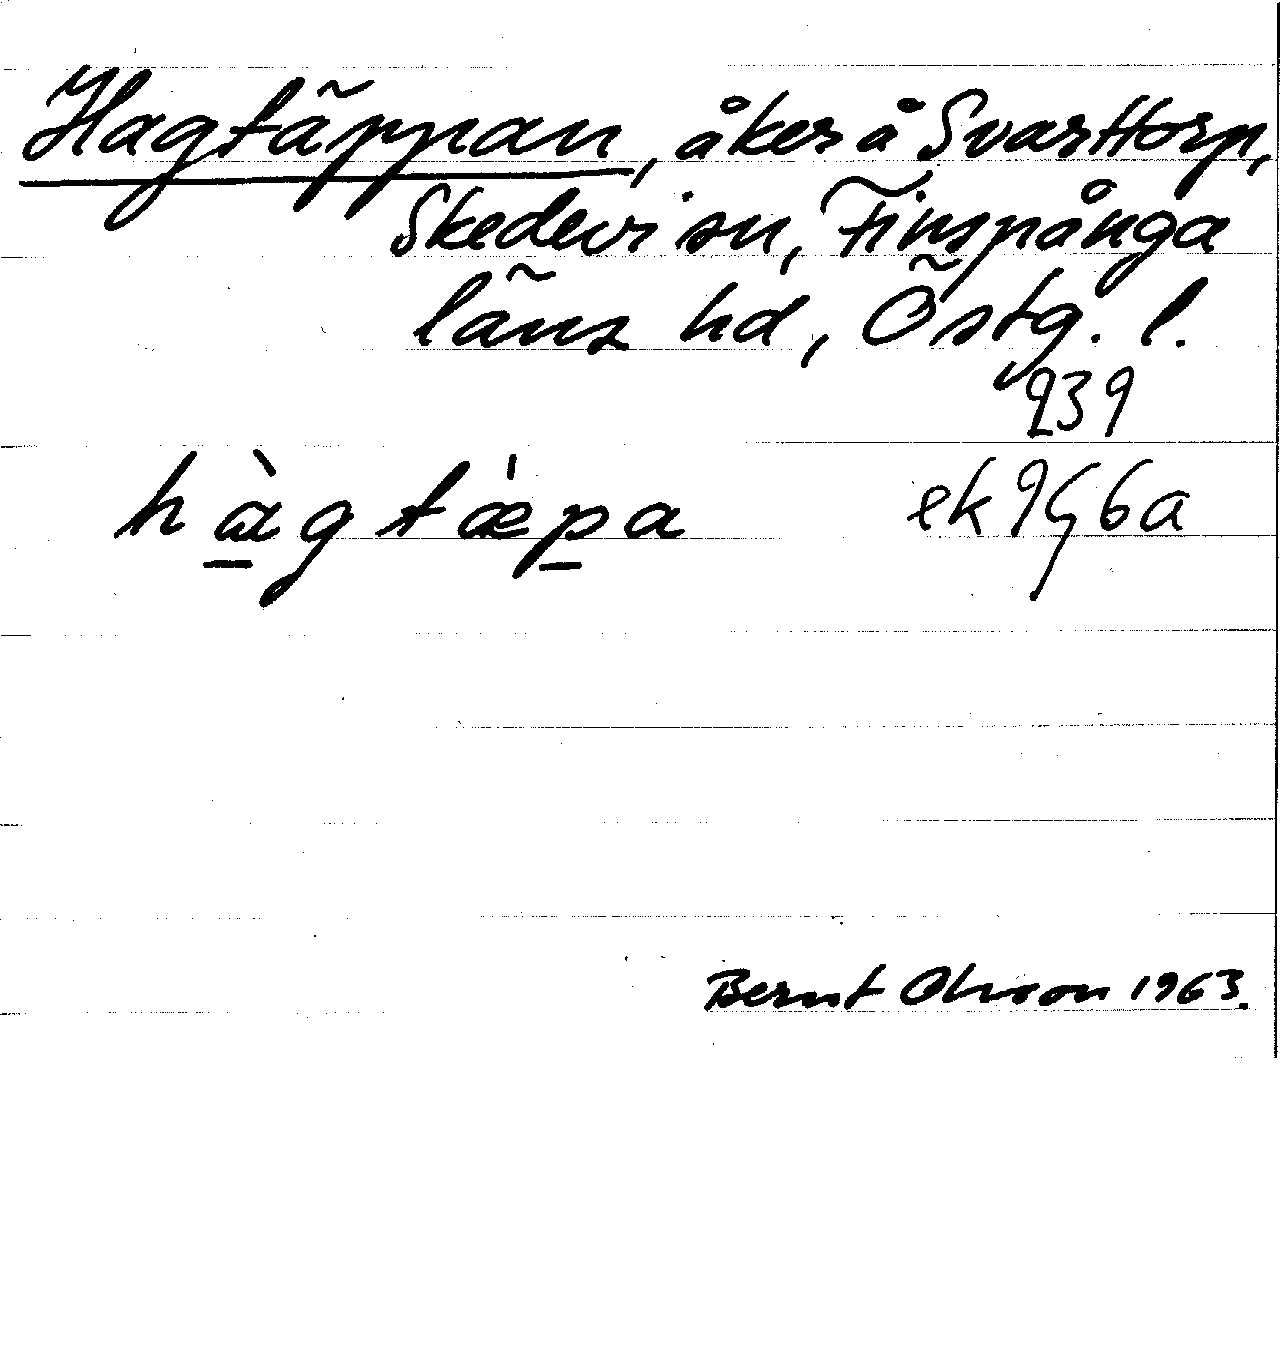 Hagtäppan, åker å Svarttorp,
Skedevi sn, Finspånga
läns hd, Östg. l.
239
hàgtǽpa ek 9G6a
Bernt Olsson 1963.